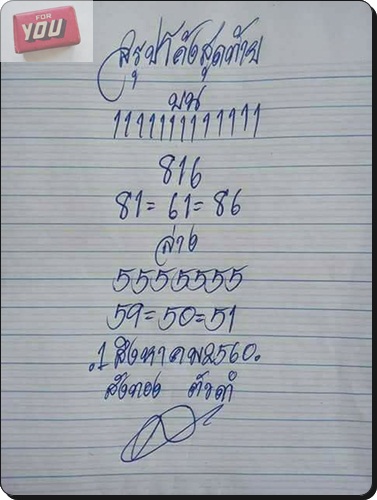 FOR
YOU
สรุปโค้งสุดท้าย
บน
1111111111111
816
81 = 61 = 86
ล่าง
5555555
59 = 50 = 51
.1 สิงหาคม 2560.
สังทอง ตัวดำ